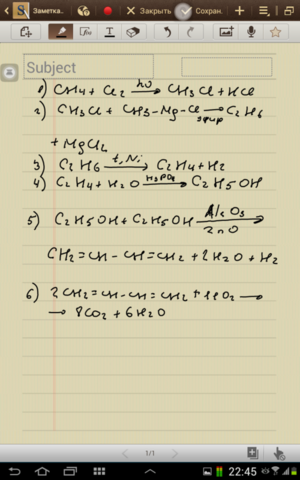 Заметка.
Закрыть
Сохран.
Subject
1) CH4 + Cl2 hν→ CH3Cl + HCl
2) CH3Cl + CH3-Mg-Cl →эфир C2H6
+ MgCl2
3) C2H6 t, Ni→ C2H4 + H2
4) C2H4 + H2O H3PO4→ C2H5OH
5) C2H5OH + C2H5OH Al2O3→
ZnO
CH2=CH-CH=CH2 + 2H2O + H2
6) 2CH2=CH-CH=CH2 + 11O2 →
→ 8CO2 + 6H2O
1/1
22:45